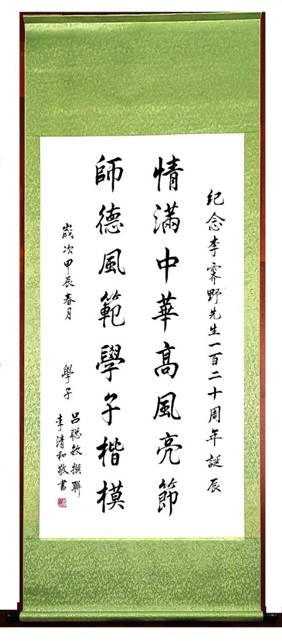 紀念李霽野先生一百二十周年誕辰
情滿中華高風亮節
師德風範學子楷模
歲次甲辰春月
學子
呂聰敏撰聯
李清和敬書